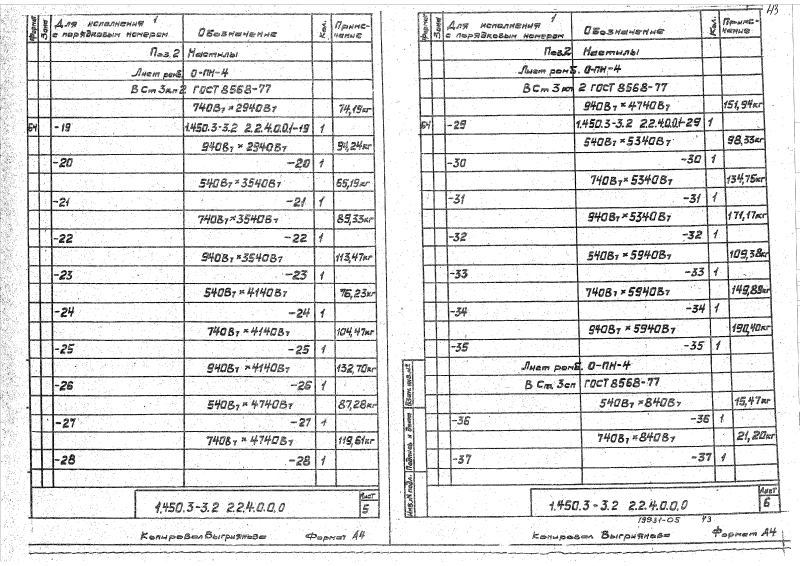 43
Формат Зона Для исполнения 1 с порядковым номером Обозначение Кол. Примечание
Поз.2 Настилы
Лист ромб. О-ПН-4
В Ст 3кп 2 ГОСТ 8568-77
740Вт×2940Вт 74,19кг
БЧ -19 1.450.3-3.2 2.2.4.0.0.1-19 1
940Вт×2940Вт 94,24кг
-20 -20 1
540Вт×3540Вт 65,19кг
-21 -21 1
740Вт×3540Вт 89,33кг
-22 -22 1
940Вт×3540Вт 113,47кг
-23 -23 1
540Вт×4140Вт 76,23кг
-24 -24 1
740Вт×4140Вт 104,47кг
-25 -25 1
940Вт×4140Вт 132,70кг
-26 -26 1
540Вт×4740Вт 87,28кг
-27 -27 1
740Вт×4740Вт 119,61кг
-28 -28 1
1.450.3-3.2 2.2.4.0.0.0 Лист 5
Копировал Выгриянова Формат А4
Формат Зона Для исполнения 1 с порядковым номером Обозначение Кол. Примечание
Поз.2 Настилы
Лист ромб. О-ПН-4
В Ст 3кп 2 ГОСТ 8568-77
940Вт×4740Вт 151,94кг
БЧ -29 1.450.3-3.2 2.2.4.0.0.1-29 1
540Вт×5340Вт 98,33кг
-30 -30 1
740Вт×5340Вт 134,75кг
-31 -31 1
940Вт×5340Вт 171,17кг
-32 -32 1
540Вт×5940Вт 109,38кг
-33 -33 1
740Вт×5940Вт 149,89кг
-34 -34 1
940Вт×5940Вт 190,40кг
-35 -35 1
Лист ромб. О-ПН-4
В Ст. 3сп ГОСТ 8568-77
540Вт×840Вт 15,47кг
-36 -36 1
740Вт×840Вт 21,20кг
-37 -37 1
Инв.№ подл. Подпись и дата Взам.инв.№
1.450.3-3.2 2.2.4.0.0.0 Лист 6
19931-05 43
Копировал Выгриянова Формат А4